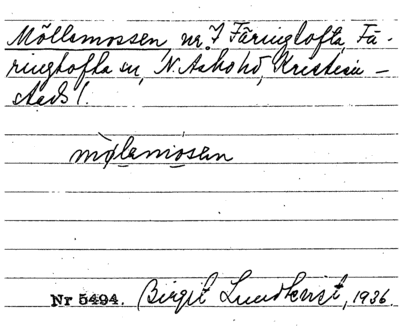 Möllamossen, nr 7 Färingtofta, Fä-
ringtofta sn, N. Asbo hd, Kristian-
stads l.
mø̀lamòsan
Nr 5494. Birgit Lundkvist, 1936.